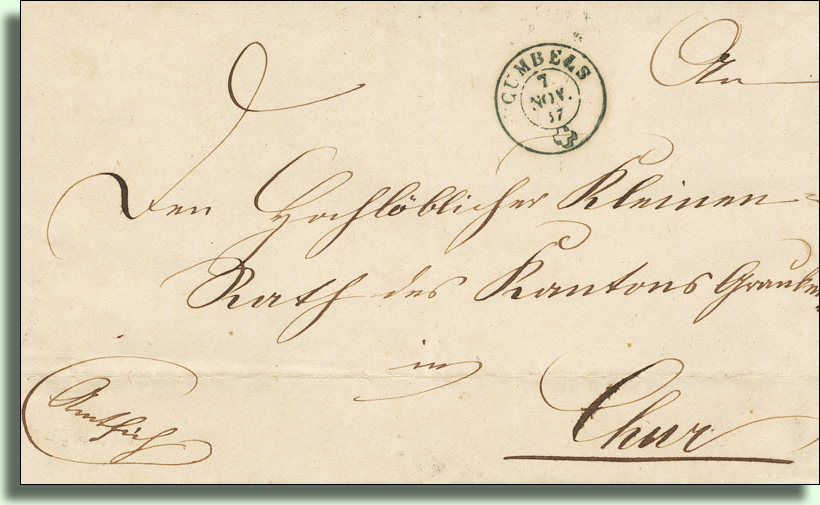 CUMBELS
7
NOV.
57
An
Den Hochlöblicher Kleinen-
Rath des Kantons Graubün
in
Amtlich
Chur